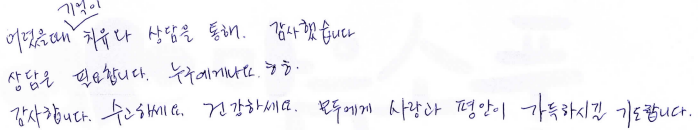 기억이
어렸을때 치유와 상담을 통해. 감사했습니다
상담은 필요합니다. 누구에게나요. 호호.
감사합니다. 수고하세요. 건강하세요. 모두에게 사랑과 평안이 가득하시길 기도합니다.